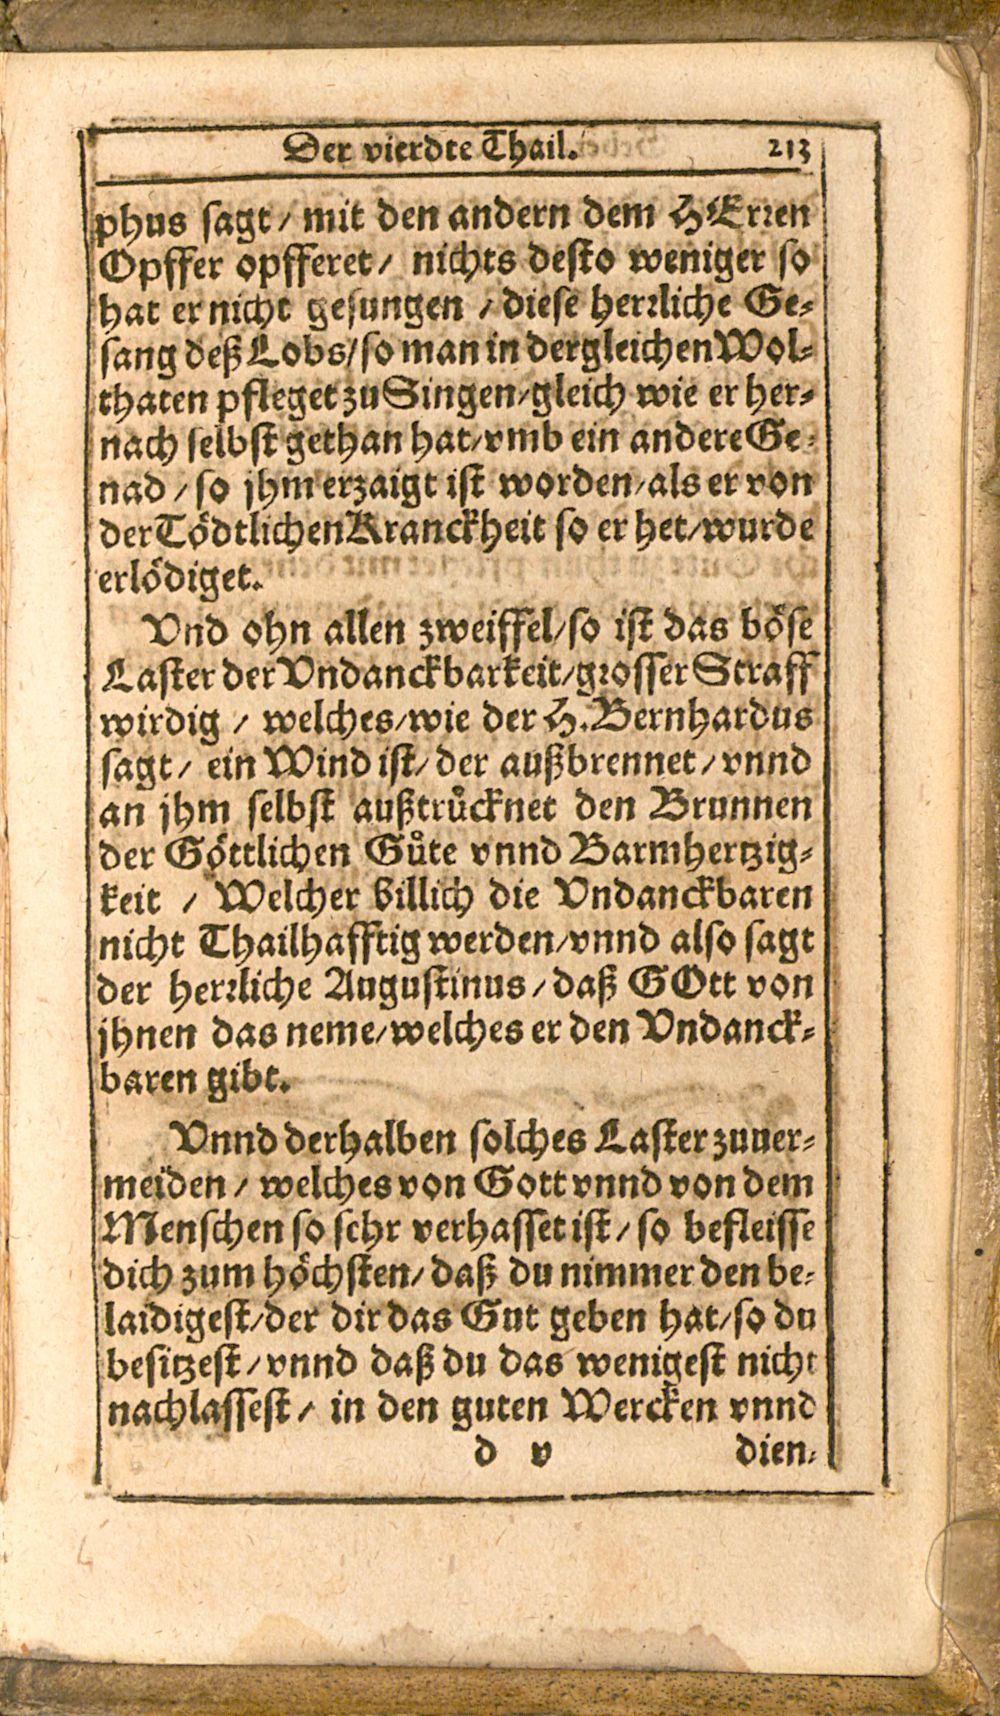 Der vierdte Thail. 213
phus sagt / mit den andern dem HErren
Opffer opfferet / nichts desto weniger so
hat er nicht gesungen / diese herrliche Ge-
sang deß Lobs / so man in dergleichen Wol-
thaten pfleget zu Singen / gleich wie er her-
nach selbst gethan hat / vmb ein andere Ge-
nad / so jhm erzaigt ist worden / als er von
der Tödtlichen Kranckheit so er het / wurde
erlödiget.
Vnd ohn allen zweiffel / so ist das böse
Laster der Vndanckbarkeit / grosser Straff
wirdig / welches / wie der H. Bernhardus
sagt / ein Wind ist / der außbrennet / vnnd
an jhm selbst außtrůcknet den Brunnen
der Göttlichen Gůte vnnd Barmhertzig-
keit / Welcher billich die Vndanckbaren
nicht Thailhafftig werden / vnnd also sagt
der herrliche Augustinus / daß GOtt von
jhnen das neme / welches er den Vndanck-
baren gibt.
Vnnd derhalben solches Laster zuuer-
meiden / welches von Gott vnnd von dem
Menschen so sehr verhasset ist / so befleisse
dich zum höchsten / daß du nimmer den be-
laidigest / der dir das Gut geben hat / so du
besitzest / vnnd daß du das wenigest nicht
nachlassest / in den guten Wercken vnnd
d v dien-